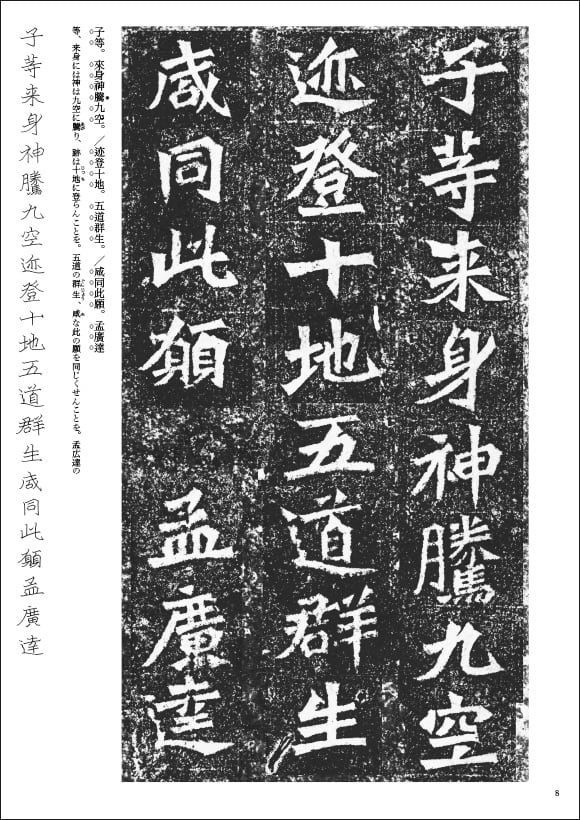 子等来身神騰九空
迹登十地五道群生
咸同此願　孟廣達
子等。來身神騰九空。／迹登十地。五道群生。／咸同此願。孟廣達
等、来身には神は九空に騰り、跡は十地に登らんことを。五道の群生、咸な此の願を同じくせんことを。孟広達の
子等来身神騰九空迹登十地五道群生咸同此願孟廣達
8